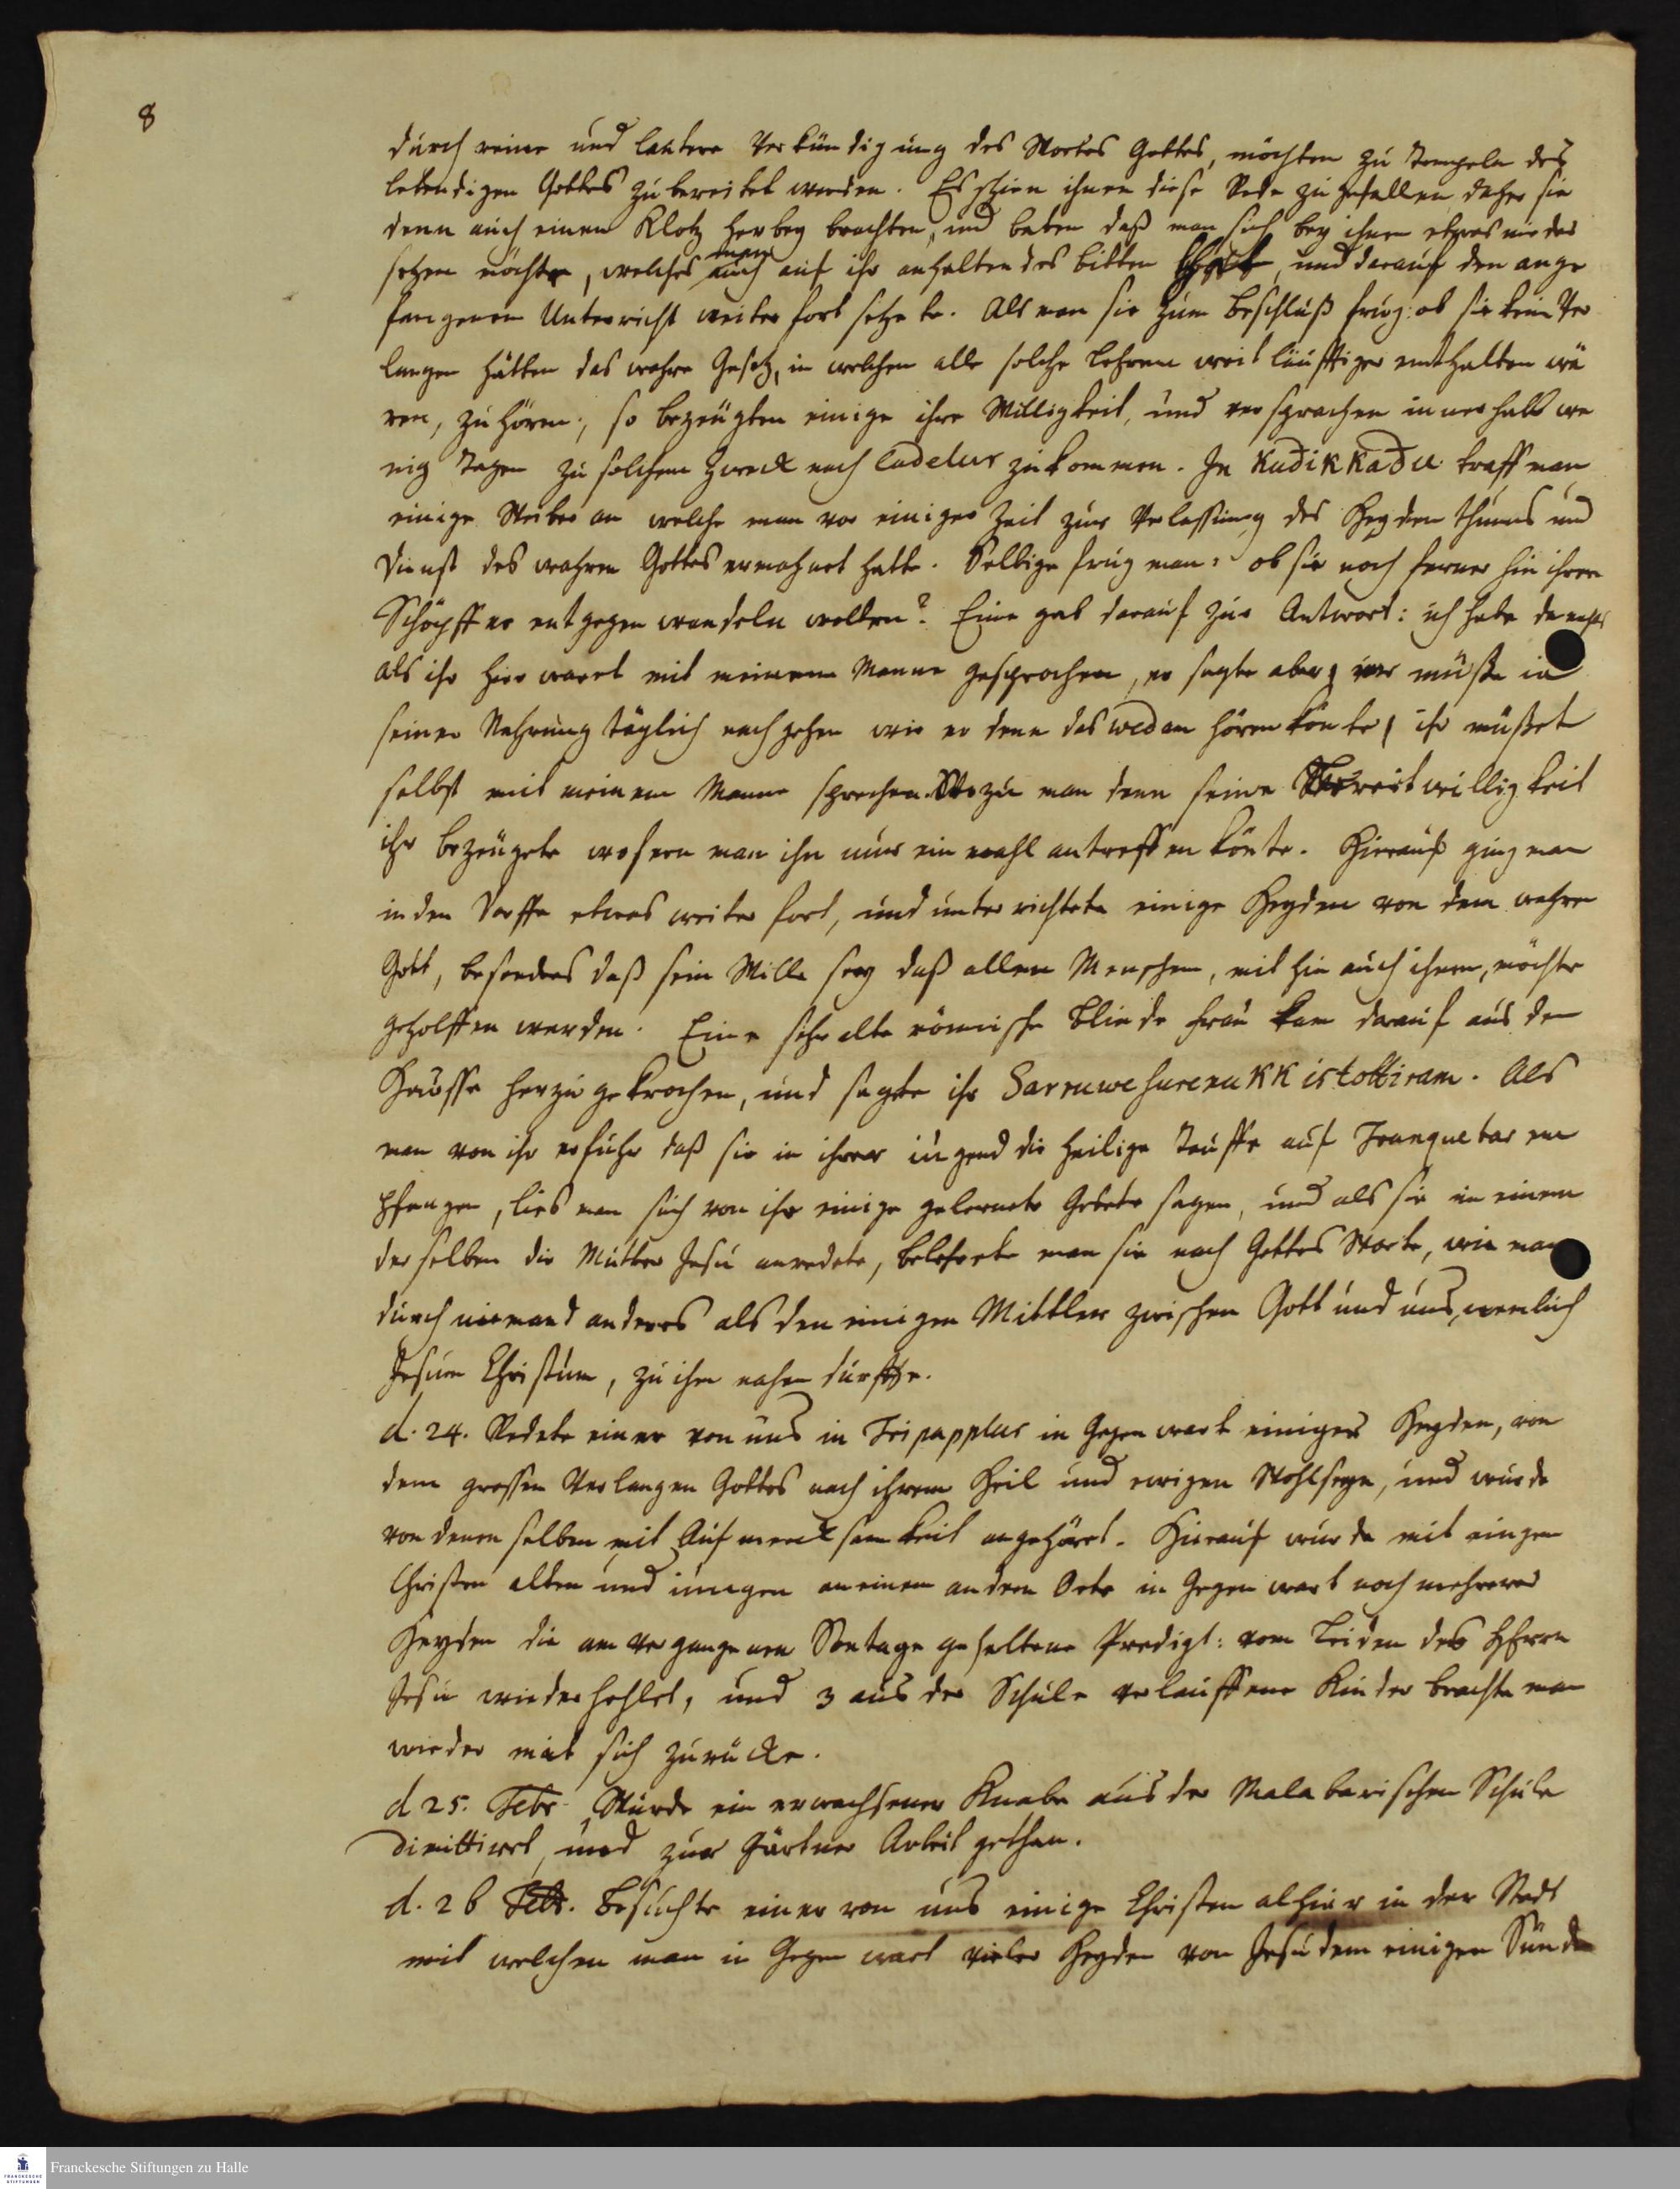 8
durch reine und lautere Verkündigung des Wortes Gottes, möchten zu Tempeln des
lebendigen Gottes zubereitet werden. Es schien ihnen diese Rede zu gefallen daher sie
denn auch einen Klotz herbey brachten, und baten daß man sich bey ihnen etwas nieder
setzen möchte, welches man auch auf ihr anhaltendes bitten that, und darauf den ange
fangenen Unterricht weiter fort setzete. Als man sie zum Beschluß frug: ob sie kein Ver
langen hätten das wahre Gesetz, in welchen alle solche Lehren weitläufftiger enthalten wä
ren, zu hören; so bezeugten einige ihre Willigkeit, und versprachen innerhalb we
nig Tagen zu solchem Zweck nach Cudelur zu kommen. In Kudikkadu traff man
einige Weiber an welche man vor einiger Zeit zur Verlassung des Heydenthums und
Dienst des wahren Gottes ermahnet hatte. Selbige frug man: ob sie noch ferner hin ihrem
Schöpffer entgegen wandeln wolten? Eine gab darauf zur Antwort: ich habe damahls
als ihr hier waret mit meinem Manne gesprochen, er sagte aber, er müße ia
seiner Nahrung täglich nachgehen wie er denn das wedam hören könte, ihr müßet
selbst mit meinem Manne sprechen. Wozu man denn seine Bereitwilligkeit
ihr bezeugete wofern man ihn nur ein mahl antreffen könte. Hierauf ging man
in den Dorffe etwas weiter fort, und unterrichtete einige Heyden von dem wahren
Gott, besonders daß sein Wille sey daß allen Menschen, mit hin auch ihnen, möchte
geholffen werden. Eine sehr alte römische blinde Frau kam darauf aus dem
Hausse herzu gekrochen, und sagte ihr Sarruwesurenukk istottiram. Als
man von ihr erfuhr daß sie in ihrer iugend die heilige Tauffe auf Tranquebar em
pfangen, lies man sich von ihr einige gelernete Gebete sagen, und als sie in einem
derselben die Mutter Jesu anredete, belehrete man sie nach Gottes Worte, wie man
durch niemand anders als den einigen Mittler zwischen Gott und uns, nemlich
Jesum Christum, zu ihm nahen dürffte.
d. 24. Redete einer von uns in Tripapplur in Gegenwart einiger Heyden, von
dem grossen Verlangen Gottes nach ihrem Heil und ewigen Wohlseyn, und wurde
von denenselben mit Aufmercksamkeit angehöret. Hierauf wurde mit einigen
Christen alten und iungen an einem andern Orte in Gegenwart noch mehrerer
Heyden die am vergangenen Sontage gehaltene Predigt: vom Leiden des HErrn
Jesu wiederhohlet, und 3 aus der Schule verlauffene Kinder brachte man
wieder mit sich zurücke.
d 25. Febr. Wurde ein erwachsener Knabe aus der Malabarischen Schule
dimittiret, und zur Gärtner Arbeit gethan.
d. 26 Febr. Besuchte einer von uns einige Christen alhier in der Stadt
mit welchen man in Gegenwart vieler Heyden von Jesu dem einigen Sünde
Franckesche Stiftungen zu Halle
FRANCKESCHE
STIFTUNGEN